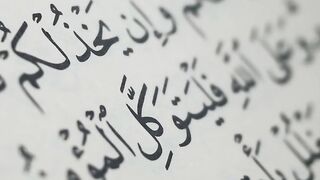 وَإِن يَخْذُلْكُمْ
وَعَلَى اللَّهِ فَلْيَتَوَكَّلِ الْمُؤْ